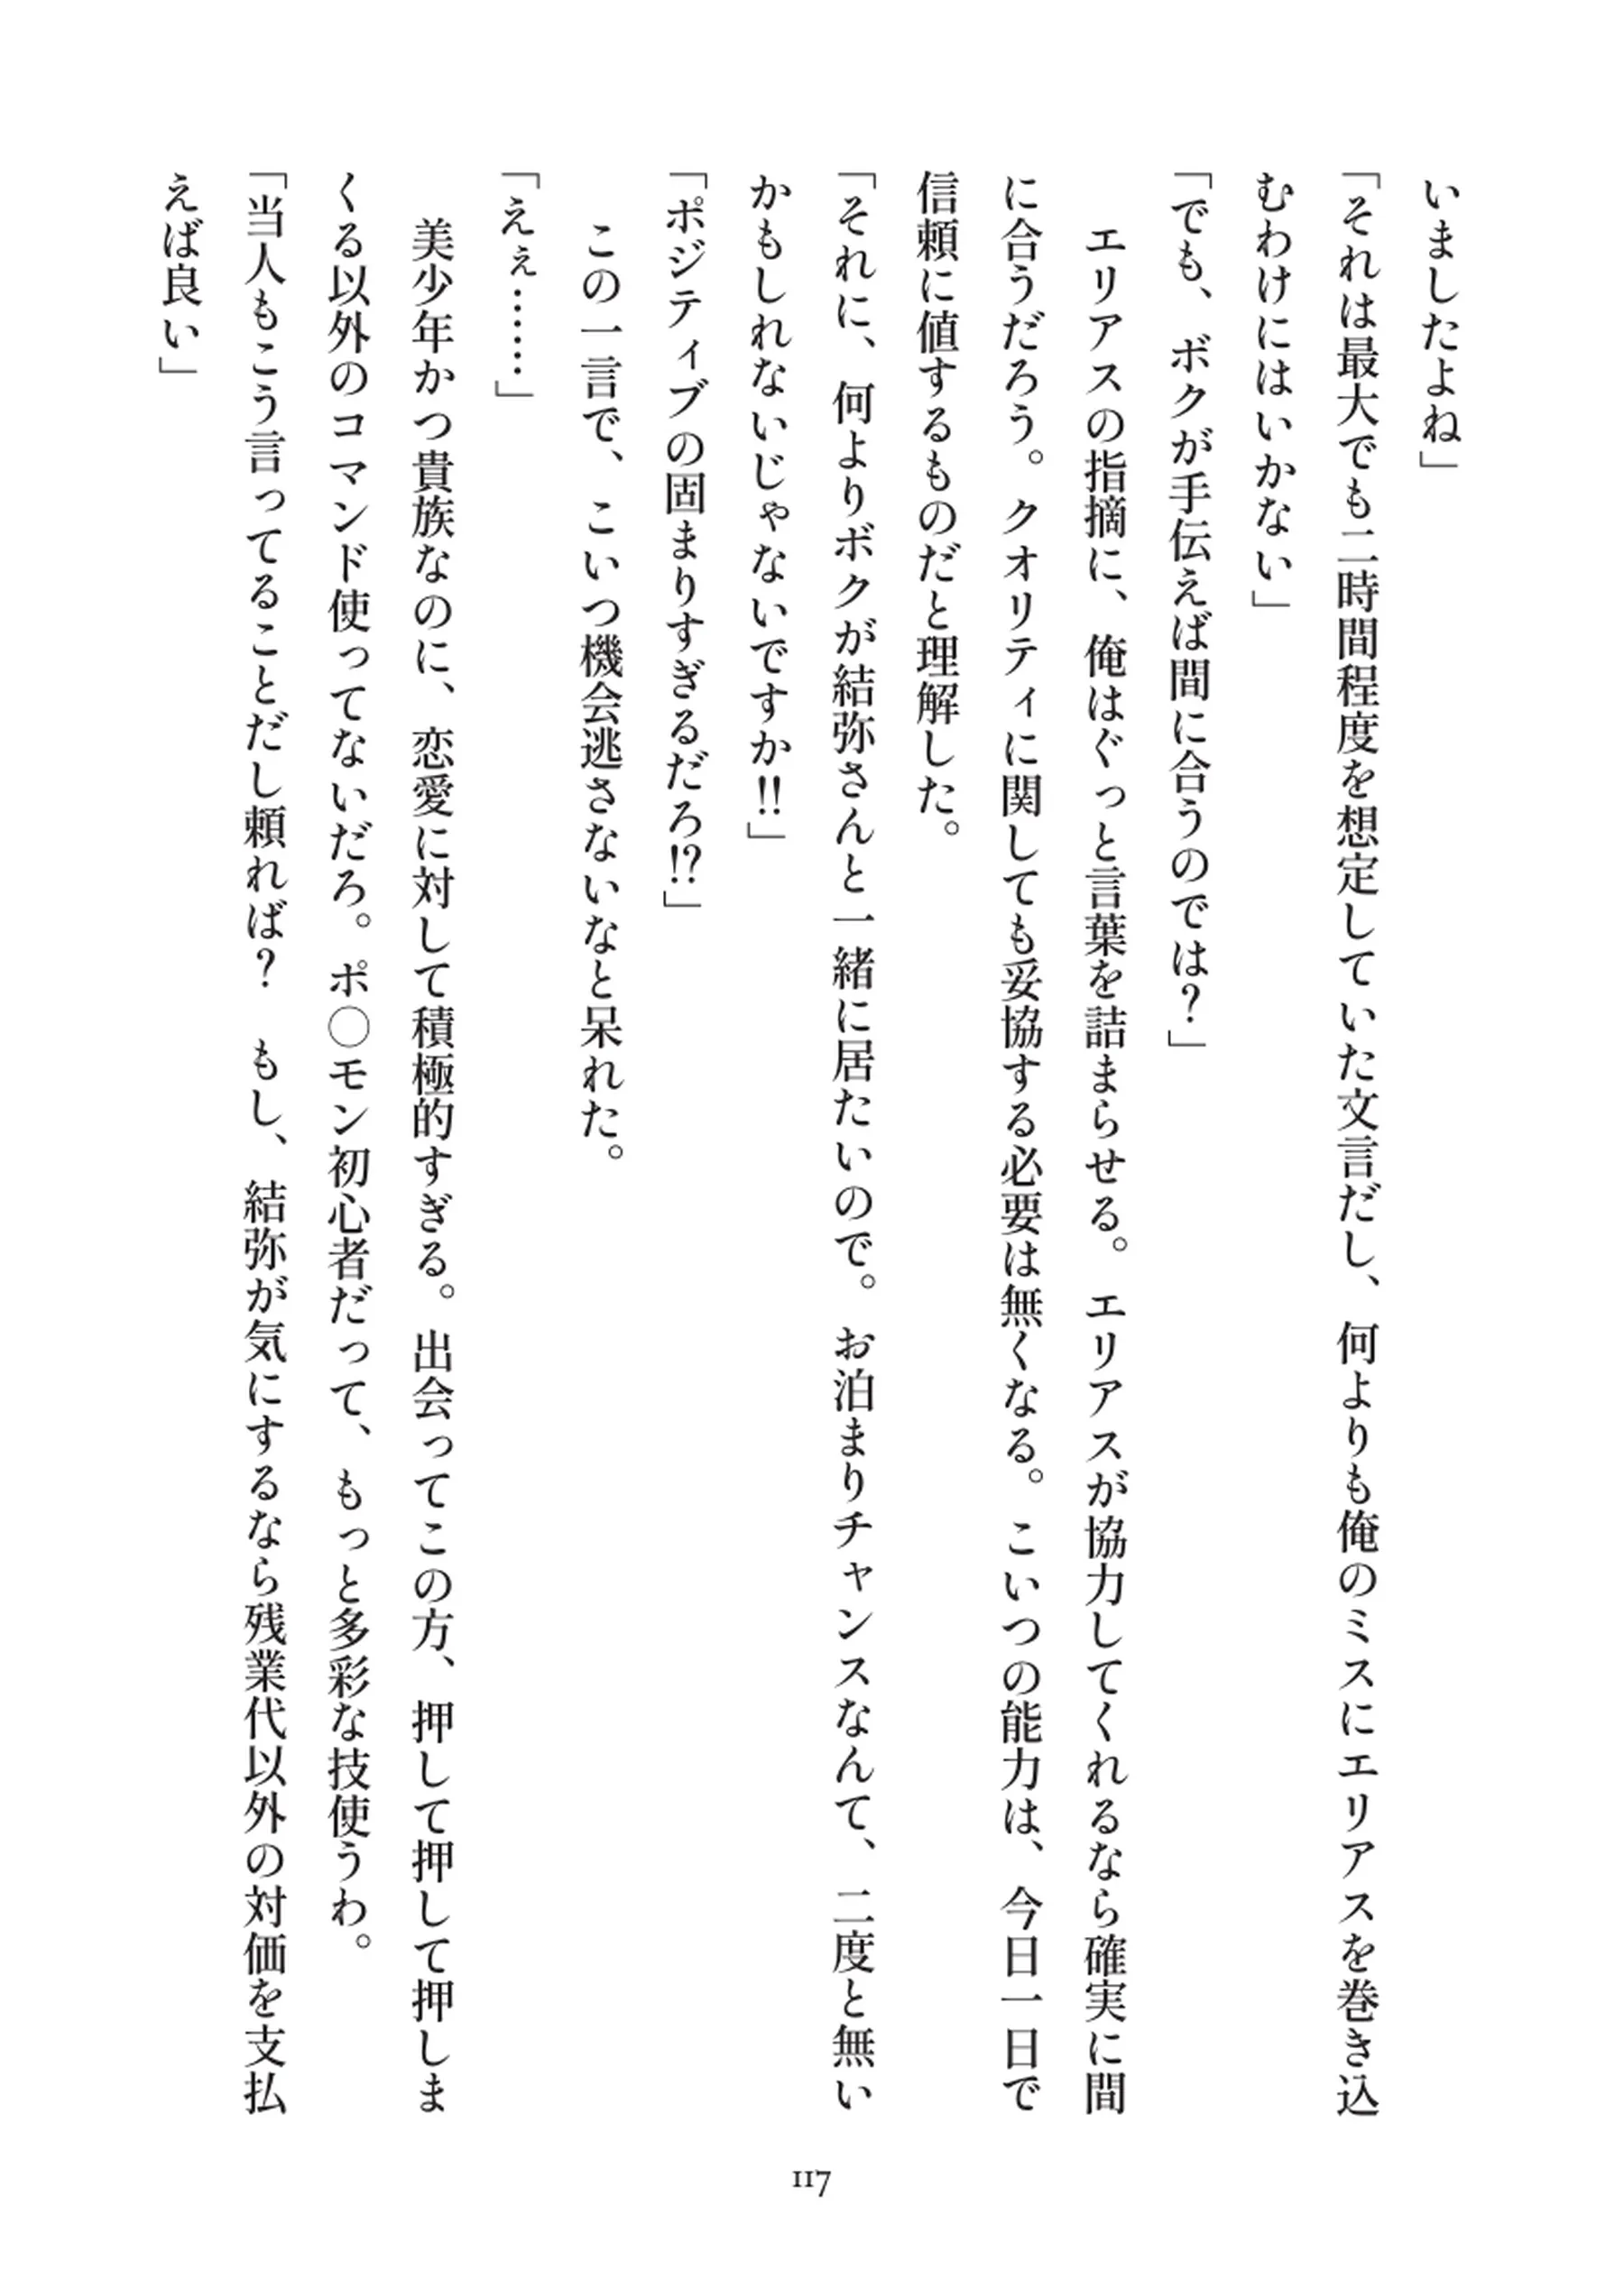 いましたよね」
「それは最大でも二時間程度を想定していた文言だし、何よりも俺のミスにエリアスを巻き込
むわけにはいかない」
「でも、ボクが手伝えば間に合うのでは？」
　エリアスの指摘に、俺はぐっと言葉を詰まらせる。エリアスが協力してくれるなら確実に間
に合うだろう。クオリティに関しても妥協する必要は無くなる。こいつの能力は、今日一日で
信頼に値するものだと理解した。
「それに、何よりボクが結弥さんと一緒に居たいので。お泊まりチャンスなんて、二度と無い
かもしれないじゃないですか‼」
「ポジティブの固まりすぎるだろ⁉」
　この一言で、こいつ機会逃さないなと呆れた。
「えぇ……」
　美少年かつ貴族なのに、恋愛に対して積極的すぎる。出会ってこの方、押して押して押しま
くる以外のコマンド使ってないだろ。ポ◯モン初心者だって、もっと多彩な技使うわ。
「当人もこう言ってることだし頼れば？　もし、結弥が気にするなら残業代以外の対価を支払
えば良い」
117